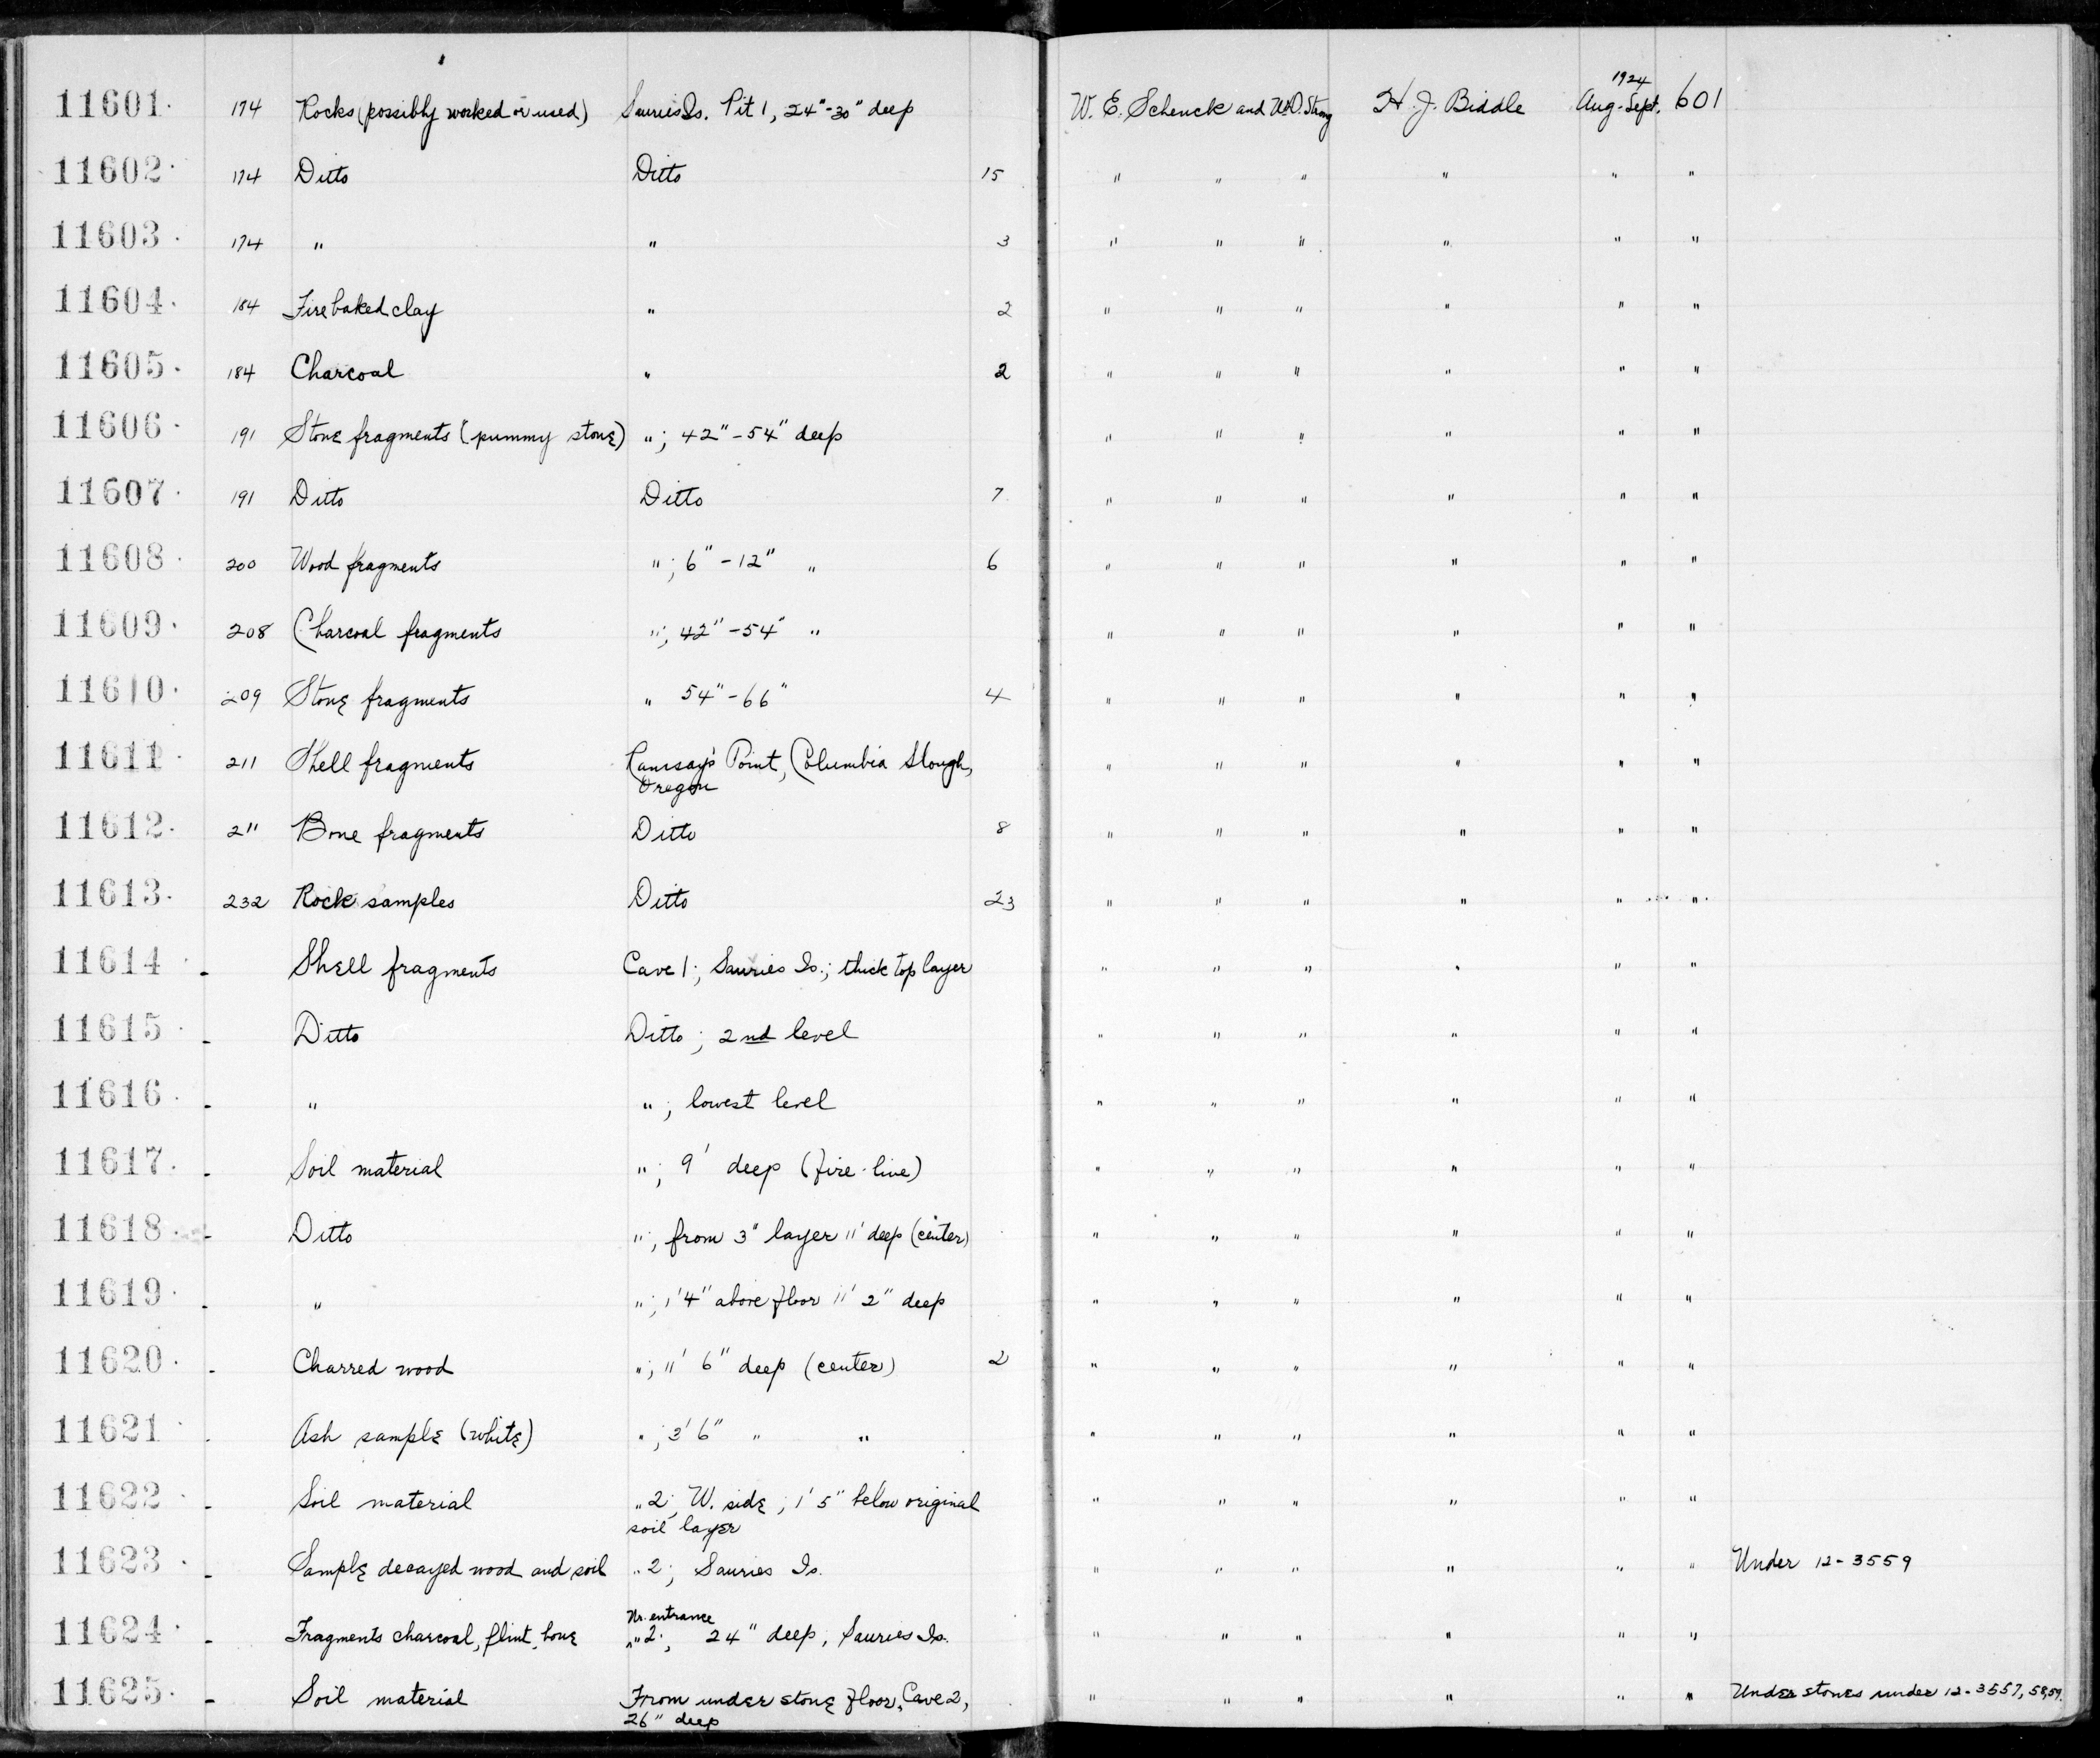 11601. 174 Rocks (possibly worked or used) Sauries Is. Pit 1, 24"-30" deep W. E. Schenck and W.D. Strong H. J. Biddle 1924 Aug-Sept. 601
11602. 174 Ditto Ditto 15 " " " " " "
11603. 174 " " 3 " " " " " "
11604. 184 Fire baked clay " 2 " " " " " "
11605. 184 Charcoal " 2 " " " " " "
11606. 191 Stone fragments (pummy stone) "; 42"-54" deep " " " " " "
11607. 191 Ditto Ditto 7 " " " " " "
11608. 200 Wood fragments "; 6"-12" " 6 " " " " " "
11609. 208 Charcoal fragments "; 42"-54" " " " " " " "
11610. 209 Stone fragments " 54"-66" 4 " " " " " "
11611. 211 Shell fragments Ramsay's Point, Columbia Slough, " " " " " "
Oregon
11612. 211 Bone fragments Ditto 8 " " " " " "
11613. 232 Rock samples Ditto 23 " " " " " "
11614. - Shell fragments Cave 1; Sauries Is.; thick top layer " " " " " "
11615. - Ditto Ditto; 2nd level " " " " " "
11616. - " "; lowest level " " " " " "
11617. - Soil material "; 9' deep (fire-line) " " " " " "
11618. - Ditto "; from 3" layer 11' deep (center) " " " " " "
11619. - " "; 1'4" above floor 11' 2" deep " " " " " "
11620. - Charred wood "; 11' 6" deep (center) 2 " " " " " "
11621. - Ash sample (white) "; 3' 6" " " " " " " " "
11622. - Soil material " 2; W. side; 1' 5" below original " " " " " "
soil layer
11623. - Sample decayed wood and soil " 2; Sauries Is. " " " " " " Under 12-3559
Nr. entrance
11624. - Fragments charcoal, flint, bone " 2; 24" deep, Sauries Is. " " " " " "
11625. - Soil material From under stone floor, Cave 2, " " " " " " Under stones under 12-3557, 58, 59.
26" deep